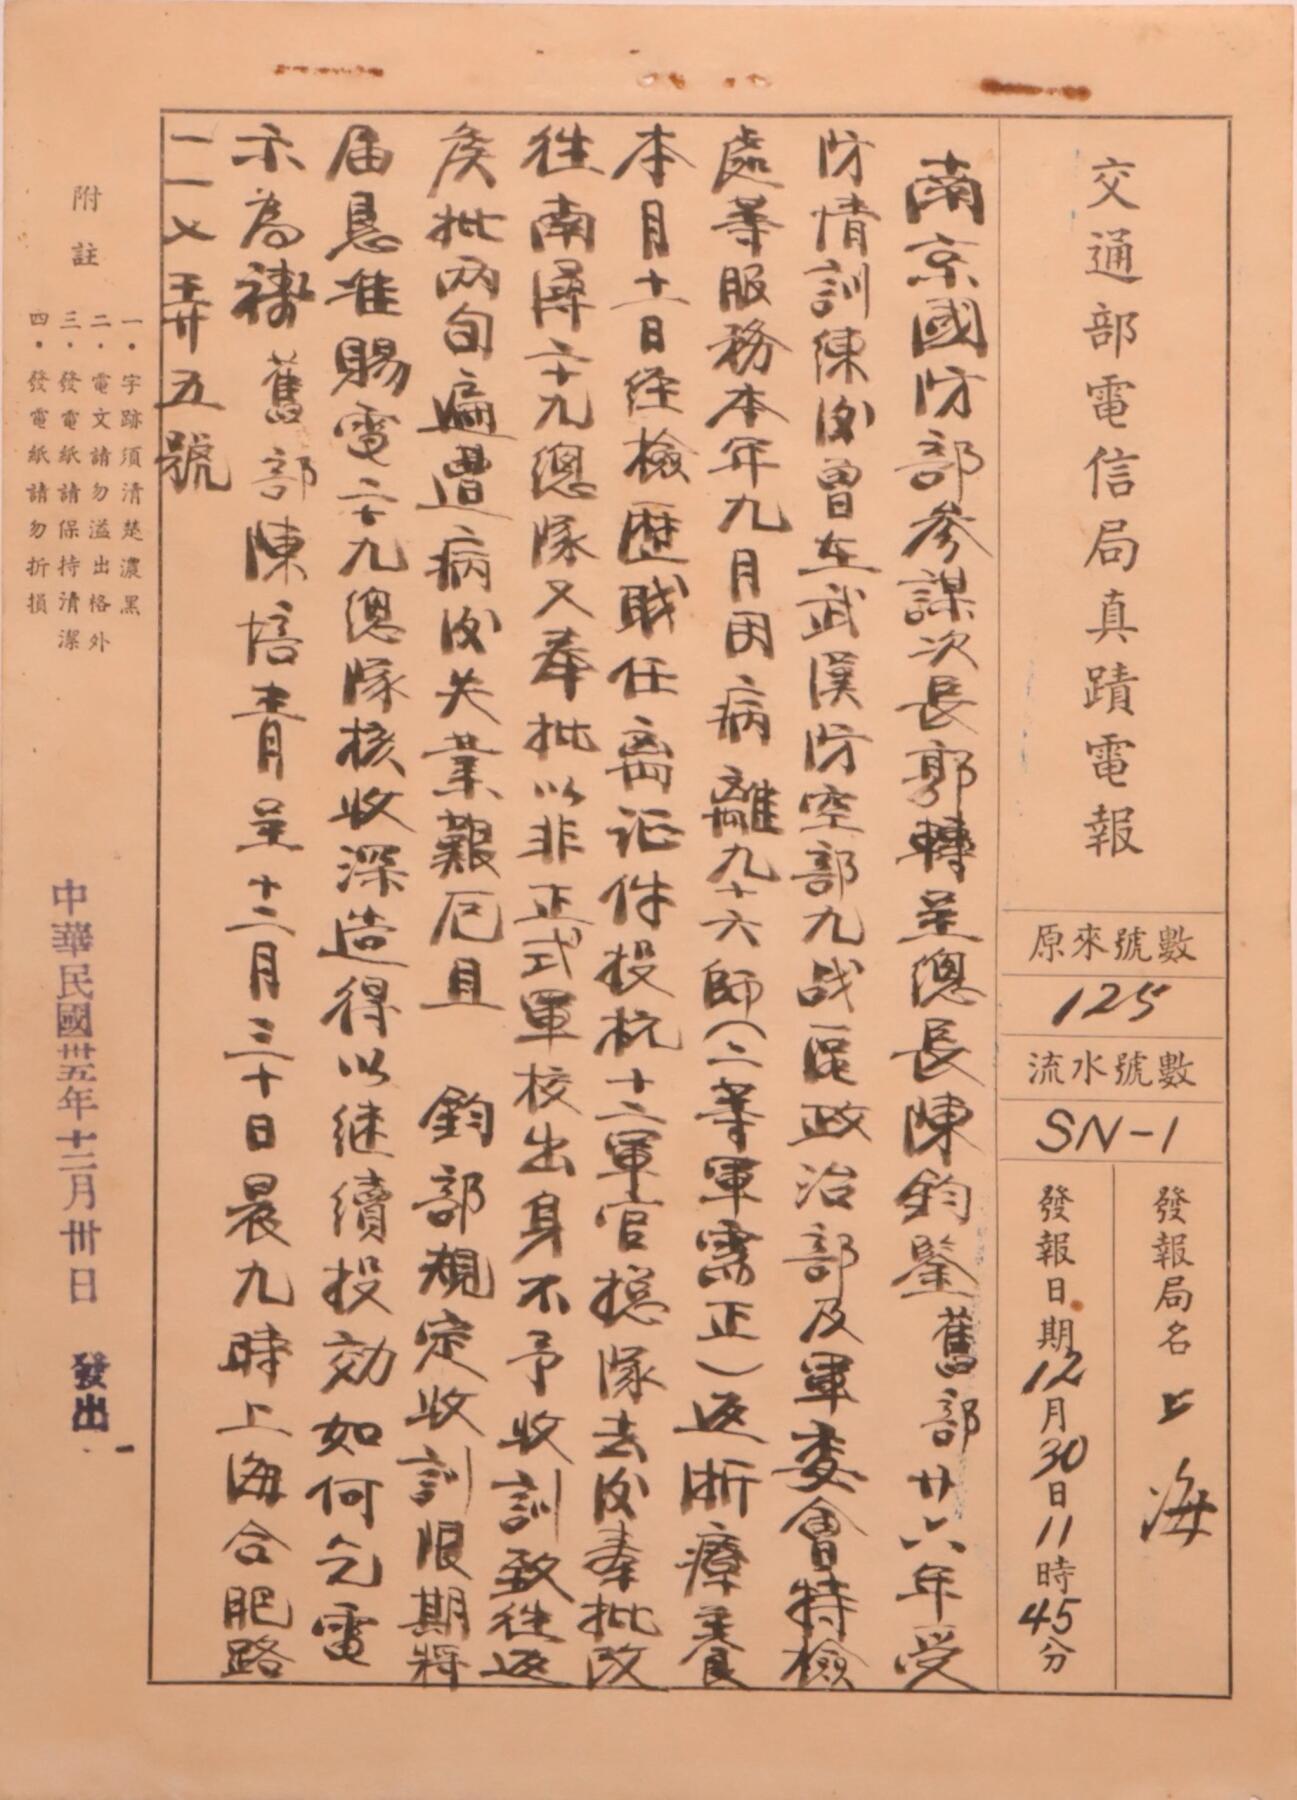 交通部電信局真蹟電報
原來號數
125
流水號數
SN-1
發報局名 上海
發報日期 12月30日11時45分
南京國防部參謀次長郭轉呈總長陳鈞鑒舊部廿六年受
防情訓練後曾在武漢防空部九战區政治部及軍委會特檢
處等服務本年九月因病離九十六師(二等軍需正)返浙療養
本月十一日经檢歷戝任离证件投杭十二軍官總隊去後奉批改
往南潯二十九總隊又奉批以非正式軍校出身不予收訓致往返
矦批兩旬遍遭病後失業艱厄且 鈞部規定收訓限期將
届懇准賜電二十九總隊核收深造得以継續投効如何乞電
示為禱 舊部陳培青呈十二月三十日晨九時上海合肥路
一一七弄五號
附註
一.字跡須清楚濃黑
二.電文請勿溢出格外
三.發電紙請保持清潔
四.發電紙請勿折損
中華民國卅五年十二月卅日 發出